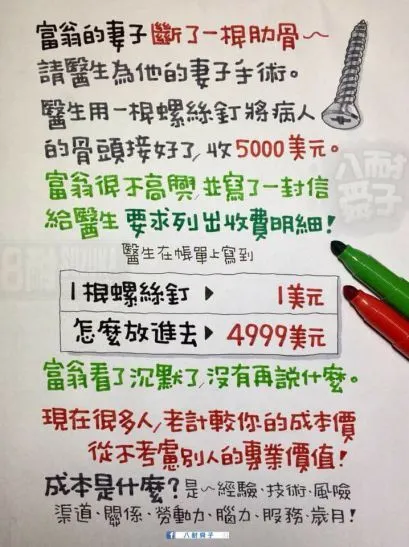 富翁的妻子斷了一根肋骨～
請醫生為他的妻子手術。
醫生用一根螺絲釘將病人
的骨頭接好了，收5000美元。
富翁很不高興，並寫了一封信
給醫生 要求列出收費明細！
醫生在帳單上寫到
1根螺絲釘 ▶ 1美元
怎麼放進去 ▶ 4999美元
富翁看了沉默了，沒有再說什麼。
現在很多人，老計較你的成本價
從不考慮別人的專業價值！
成本是什麼？是～經驗、技術、風險
渠道、關係、勞動力、腦力、服務、歲月！
八耐舜子
八耐舜子